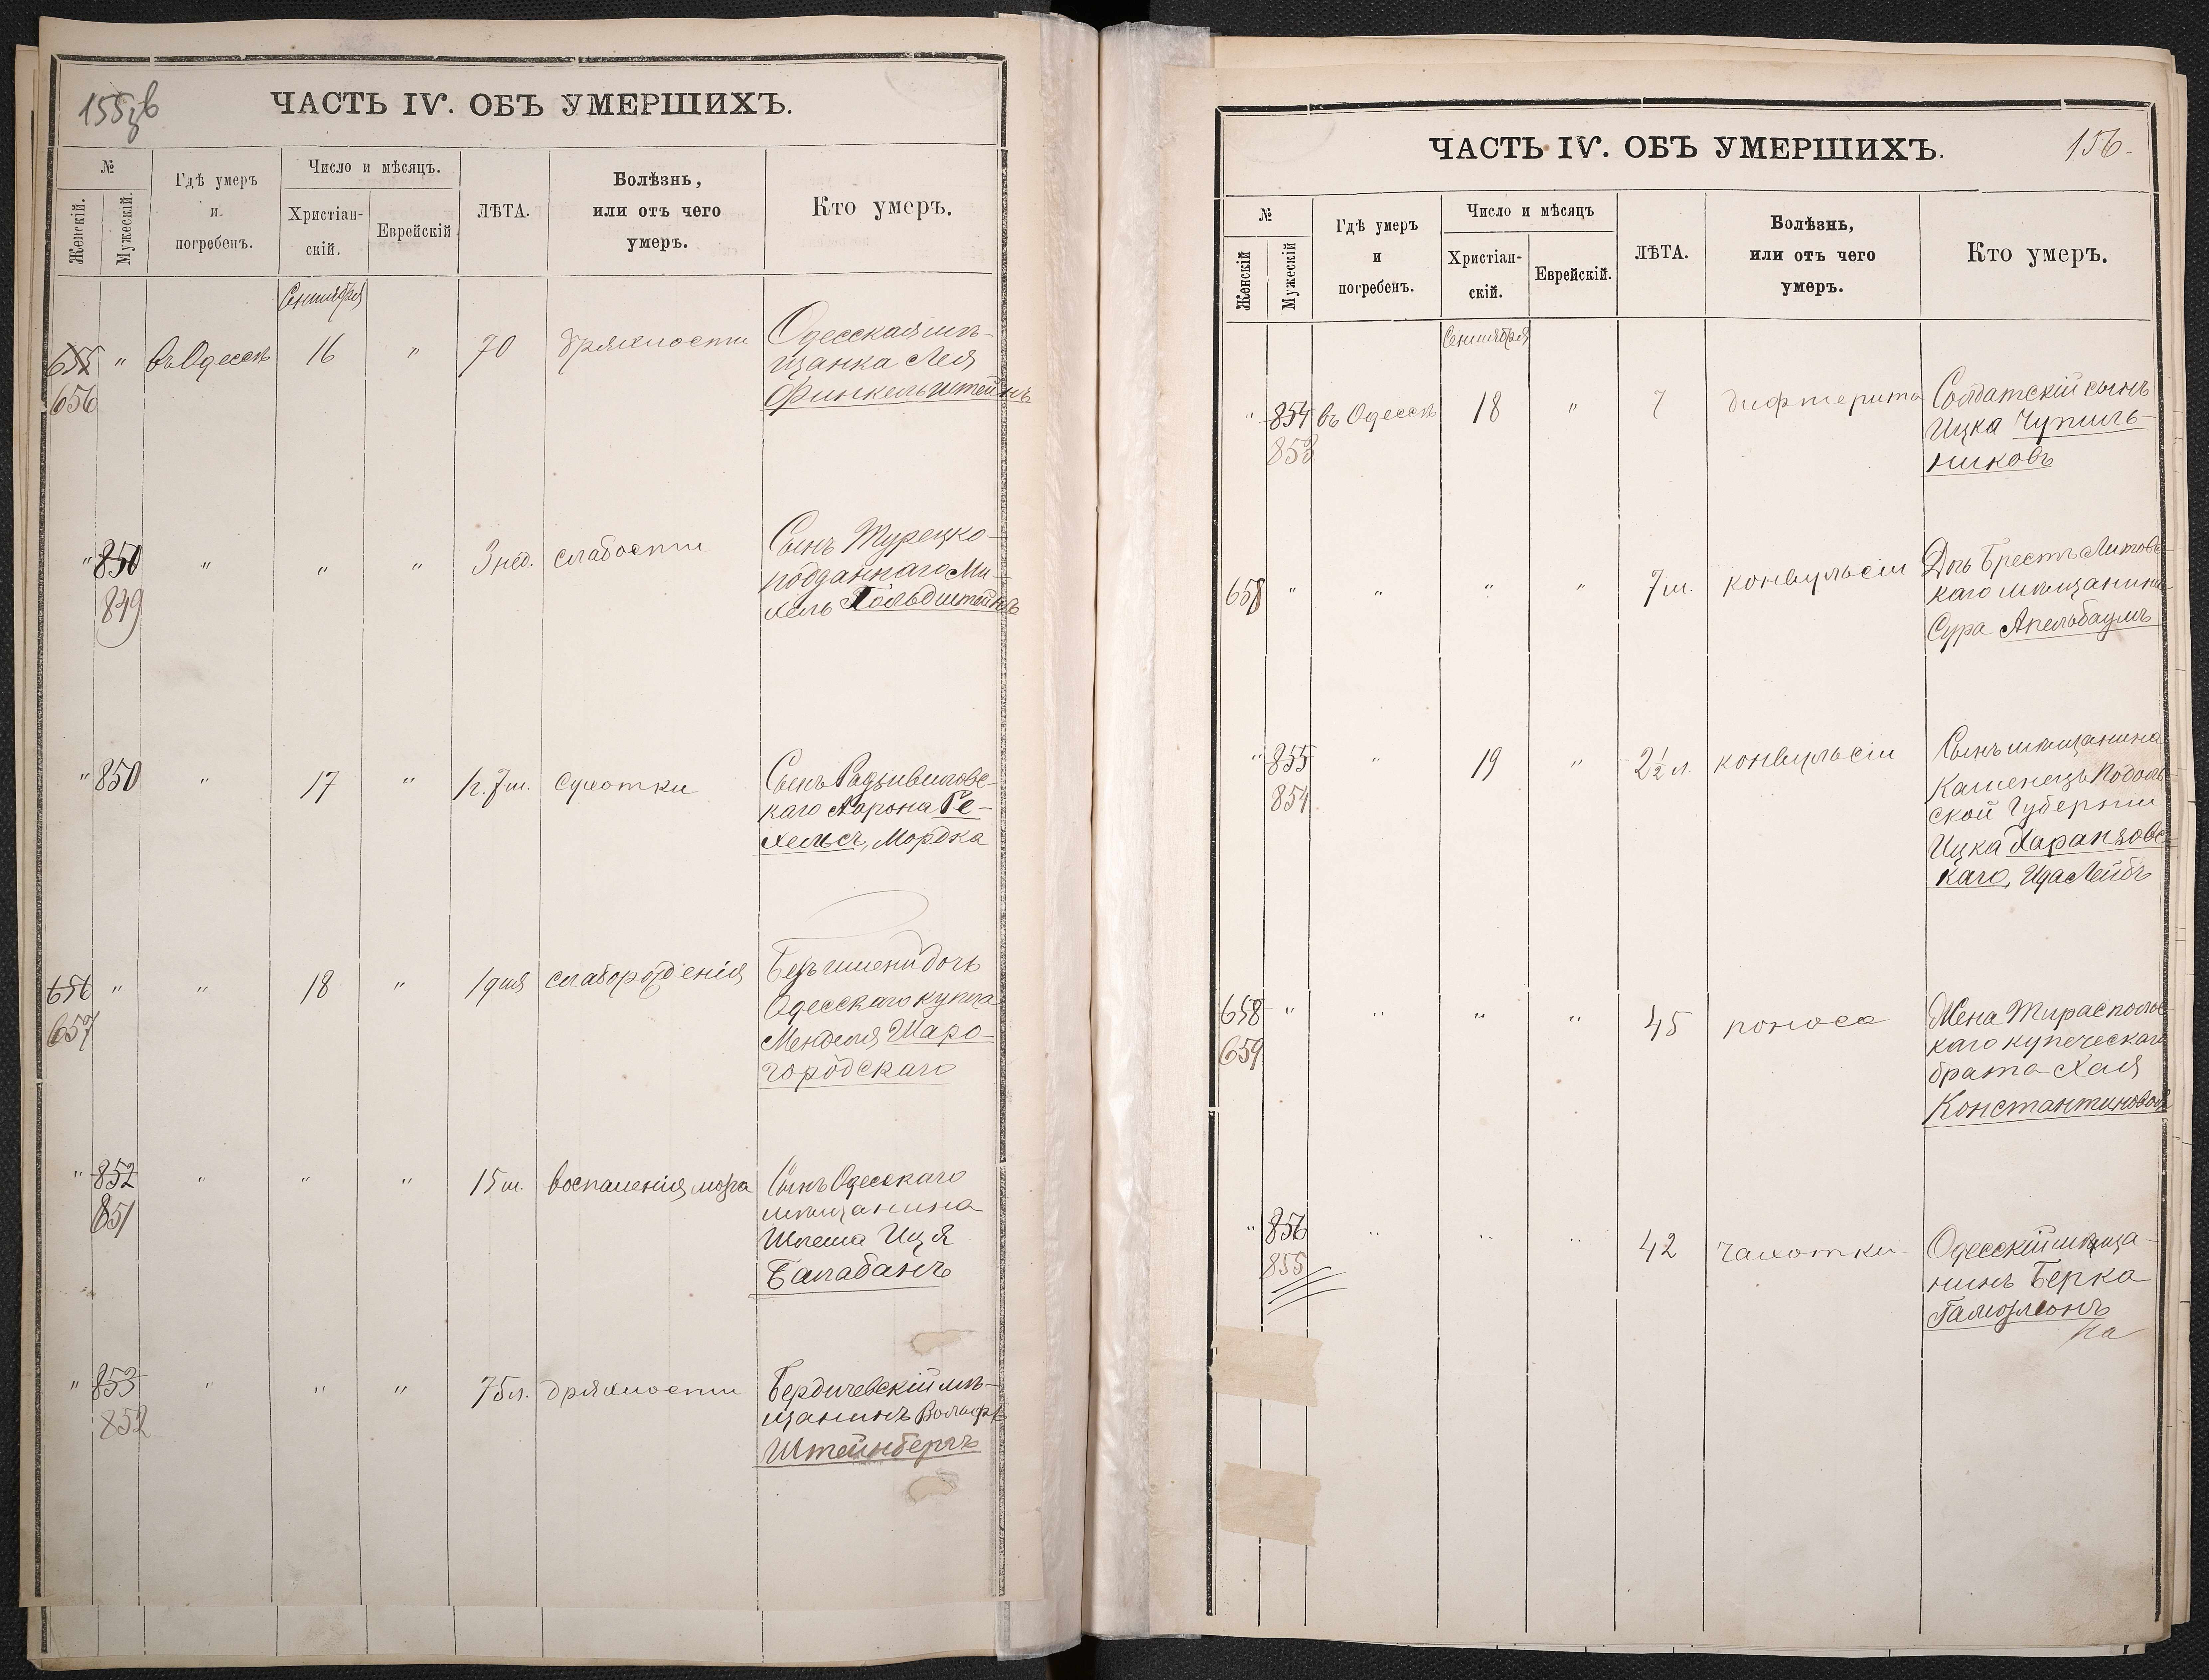 155
ЧАСТЬ IV. ОБЪ УМЕРШИХЪ.
№
Женскій.
Мужескій.
Гдѣ умеръ
и
погребенъ.
Число и мѣсяцъ.
Христіан-
скій.
Еврейскій
ЛѢТА.
Болѣзнь,
или отъ чего
умеръ.
Кто умеръ.
Сентября
655 " въ Одессѣ 16 " 70 дряхлости Одесская мѣ-
656 щанка Лея
Финкельштейнъ
" 850 " " " 3 нед. слабости Сынъ Турецко-
849 подданнаго Ми-
хель Гольдштейнъ
" 850 " 17 " 1г. 7м. сухотки Сынъ Радзивиловс-
каго Аарона Ге-
хельсъ, Мордка
656 " " 18 " 1 дня слаборожденія Безъ имени дочь
657 Одесскаго купца
Менделя Шаро-
городскаго
" 852 " " " 15 м. воспаленія мозга Сынъ Одесскаго
851 мѣщанина
Шлема Иця
Балабанъ
" 853 " " " 75 л. дряхлости Бердичевскій мѣ-
852 щанинъ Вольфъ
Штейнбергъ
ЧАСТЬ IV. ОБЪ УМЕРШИХЪ.
156.
№
Женскій
Мужескій
Гдѣ умеръ
и
погребенъ.
Число и мѣсяцъ
Христіан-
скій.
Еврейскій.
ЛѢТА.
Болѣзнь,
или отъ чего
умеръ.
Кто умеръ.
Сентября
" 854 въ Одессѣ 18 " 7 дифтерита Солдатскій сынъ
853 Ицка Чупиль-
никовъ
658 " " " " 7 м. конвульсіи Дочь Брестъ Литовс-
каго мѣщанина
Сура Апельбаумъ
" 855 " 19 " 2½ л конвульсіи Сынъ мѣщанина
854 Каменецъ Подоль-
ской Губерніи
Ицка Харанзовс-
каго, Лейбъ
658 " " " " 45 поноса Жена Тираспольс-
659 каго купеческаго
брата Хая
Константиновой
" 856 " " " 42 чахотки Одесскій мѣща-
855 нинъ Берка